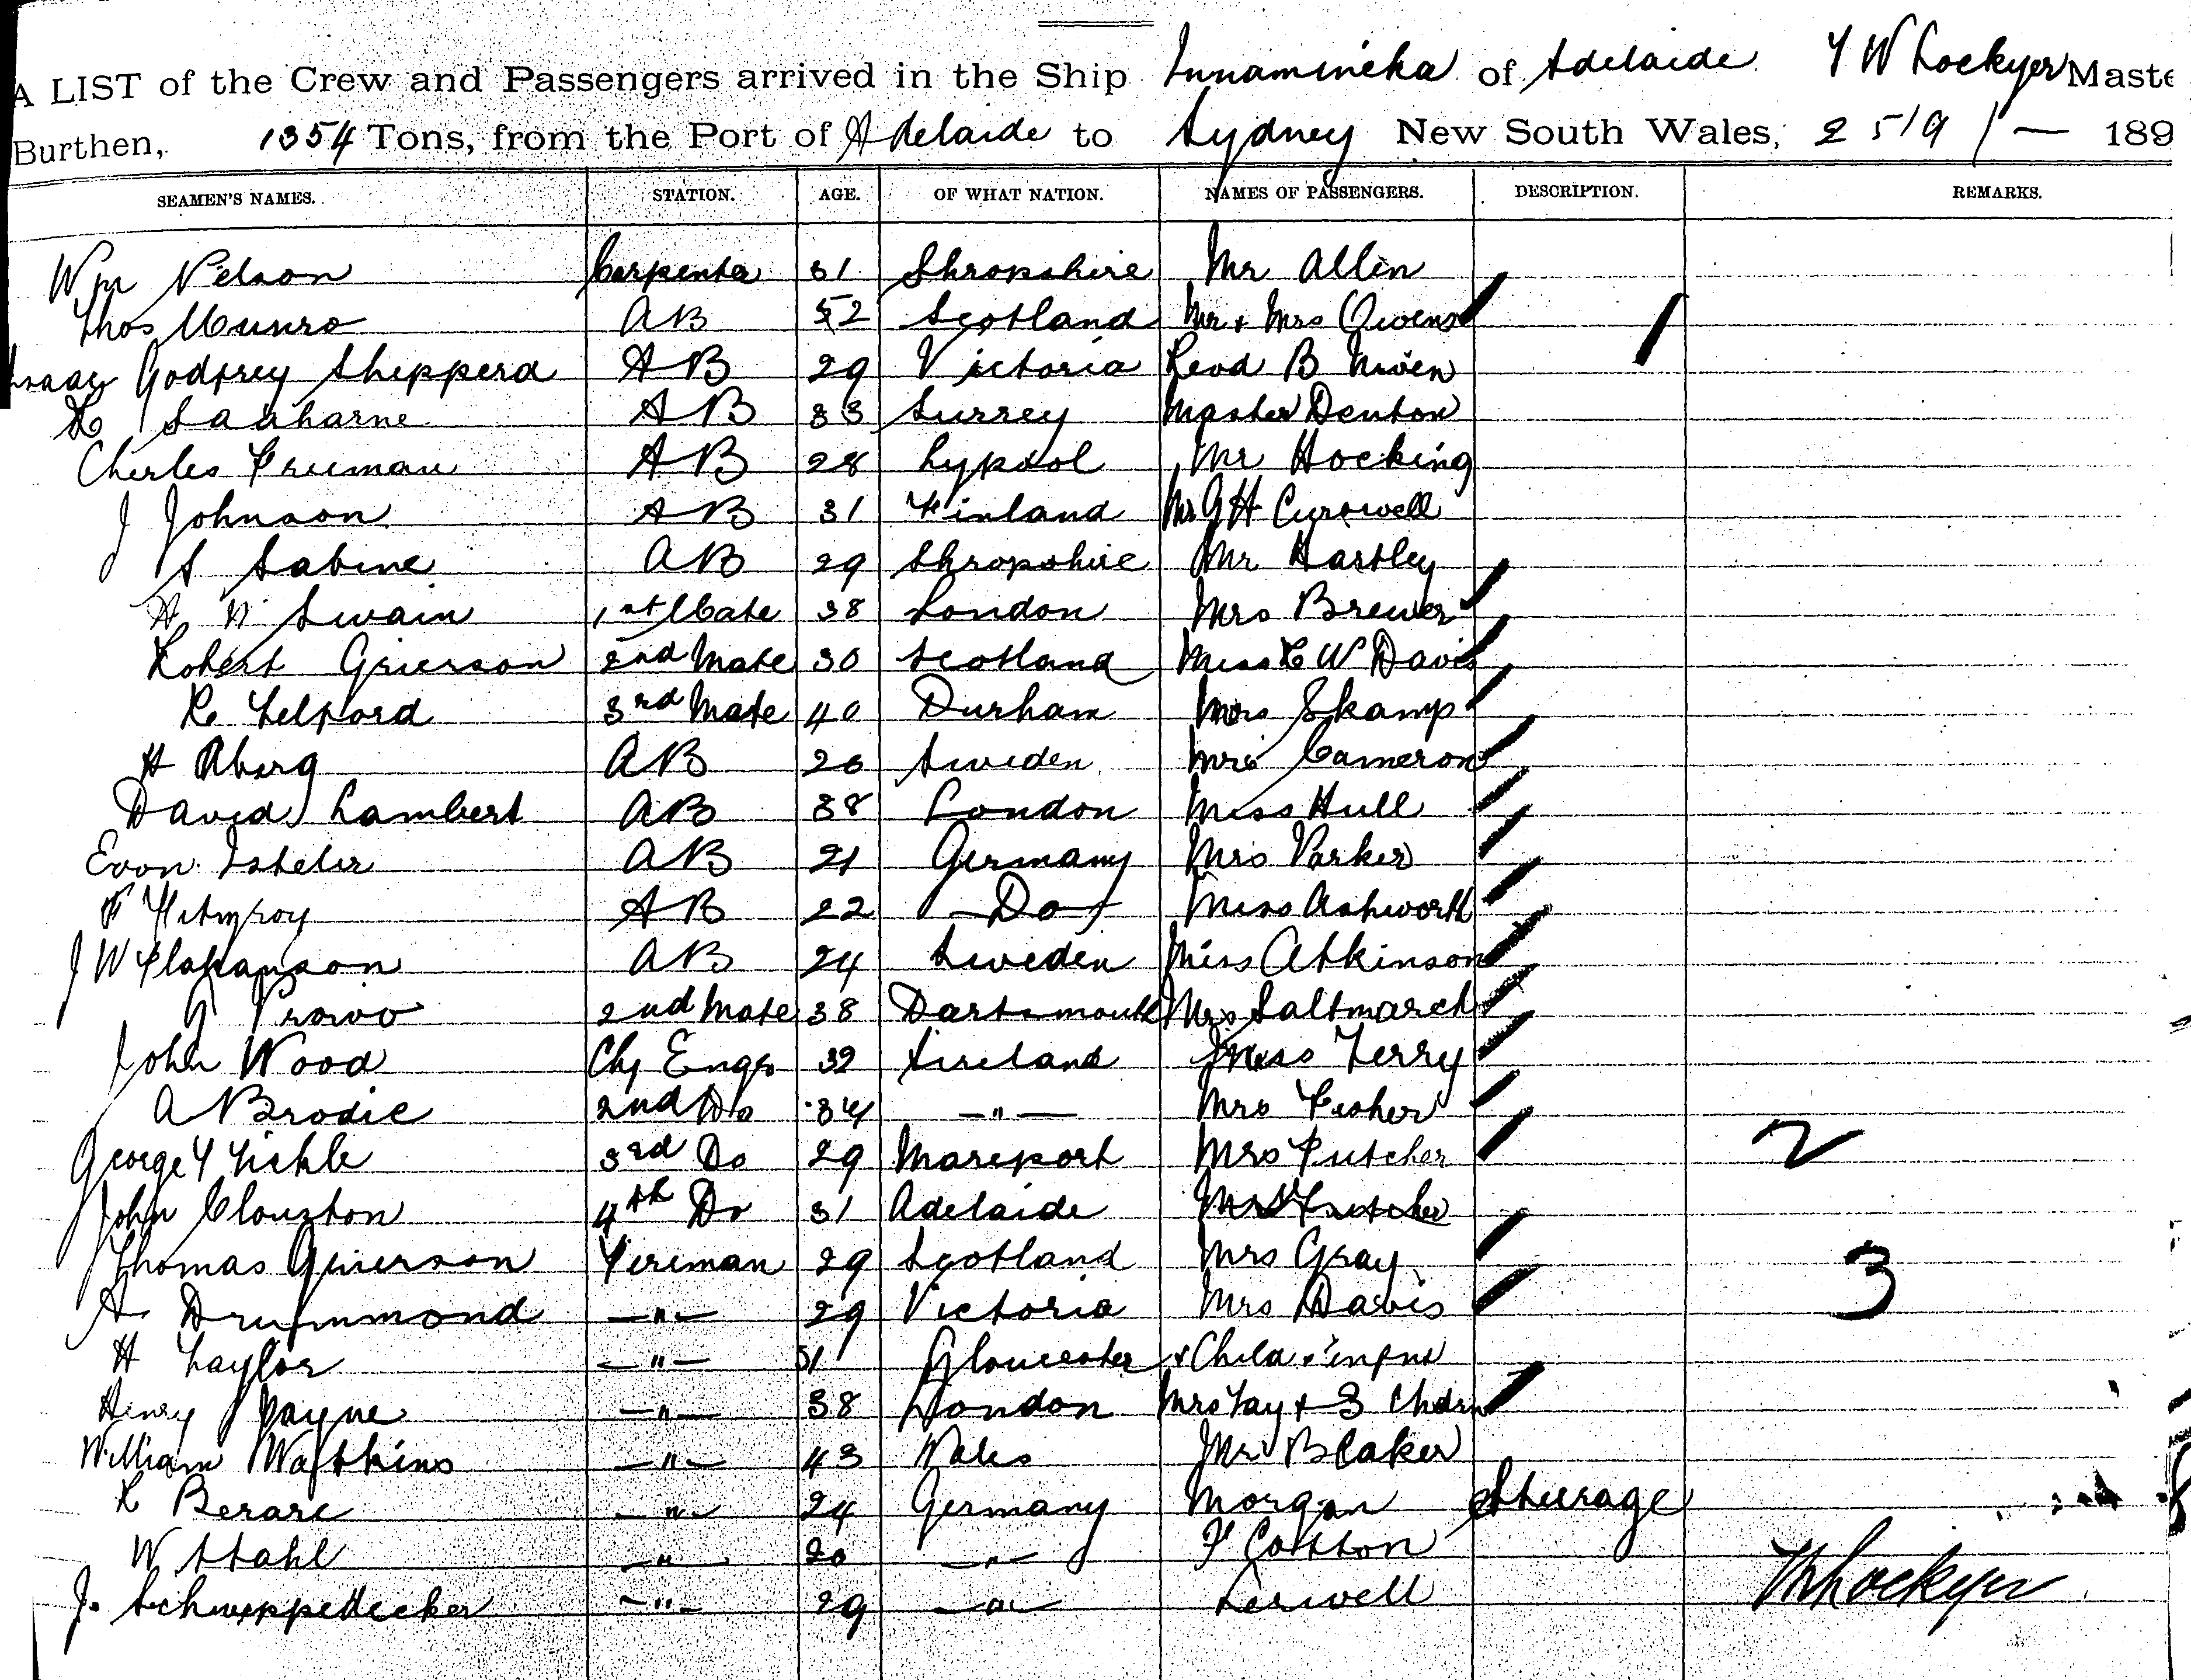 A LIST of the Crew and Passengers arrived in the Ship Innamincka of Adelaide Y W Lockyer Maste
Burthen, 1354 Tons, from the Port of Adelaide to Sydney New South Wales, 25/9/ — 189
SEAMEN'S NAMES. STATION. AGE. OF WHAT NATION. NAMES OF PASSENGERS. DESCRIPTION. REMARKS.
Wm Nelson Carpenter 31 Shropshire Mr Allen
Thos Munro AB 52 Scotland Mr + Mrs Owens
Godfrey Shepperd AB 29 Victoria Revd B Niven
AB 33 Surrey Master Denton
Charles Freeman AB 28 Mr Hocking
J Johnson AB 31 Finland Mr G H
S Sabine AB 29 Shropshire Mr Hartley
Swain 1st Mate 38 London Mrs Brewer
Robert Grierson 2nd Mate 30 Scotland Miss W Davis
R Telford 3rd Mate 40 Durham Mrs Skamp
H Aberg AB 26 Sweden Mrs Cameron
David Lambert AB 38 London Miss Hull
AB 21 Germany Mrs Parker
F AB 22 Do Miss Ashworth
J W AB 24 Sweden Miss Atkinson
G 2nd Mate 38 Dartmouth Mrs Saltmarch
John Wood Chf Engr 32 Ireland Miss Terry
A Brodie 2nd Do 34 —"— Mrs Fisher
George 3rd Do 29 Mareport Mrs Futcher 2
John Clouston 4th Do 31 Adelaide
Thomas Grierson Fireman 29 Scotland Mrs Gray 3
A Drummond —"— 29 Victoria Mrs Davis
H Taylor —"— 31 Gloucester + Child + infnt
Henry Payne —"— 38 London Mrs Fay + 3 Chdrn
William Watkins —"— 43 Wales Mr Blaker
—"— 24 Germany Morgan Steerage
W Stahl —"— 20 —"— F Cotton
J. —"— 29 —"— Lerwell
Lockyer